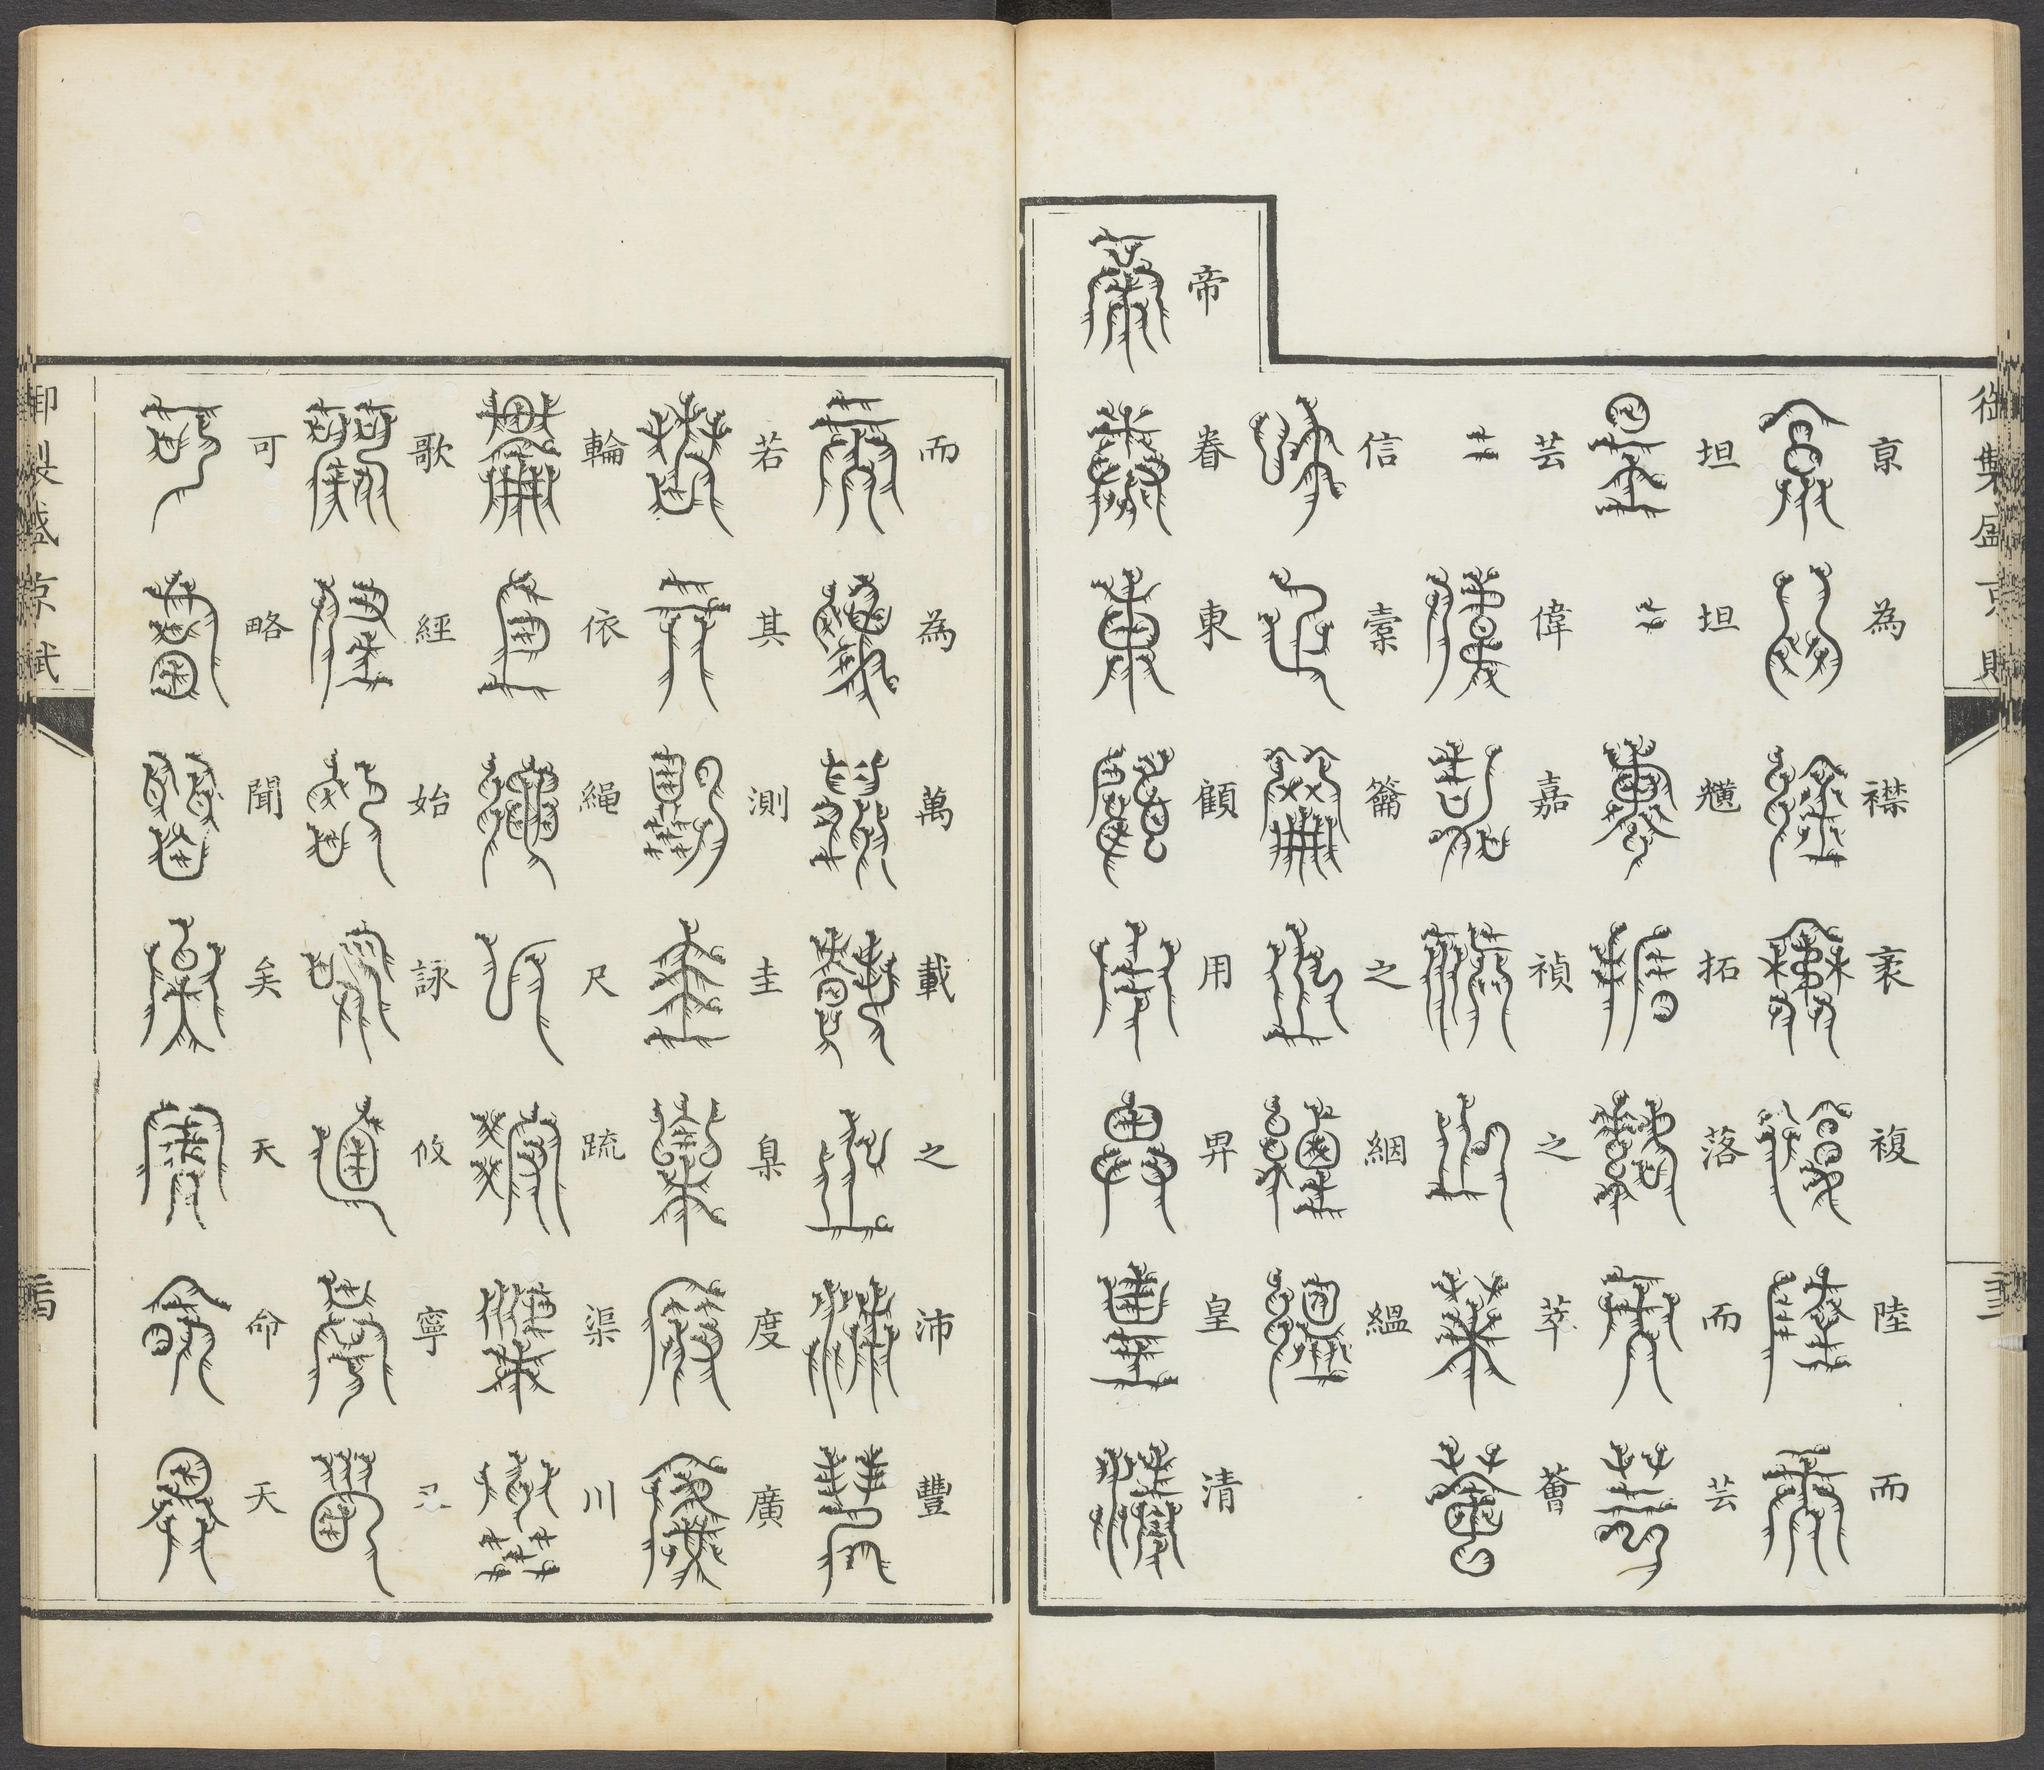 御製盛京賦
亰為襟袤複陸而
坦坦拓落而芸
芸偉嘉禎之萃薈
信橐籥之絪縕
帝眷東顧用畀皇清
而為萬載之沛豐
若其測圭臬度廣
輪依繩尺䟽渠川
歌經始詠攸寧
可略聞矣天命天
御製盛京賦